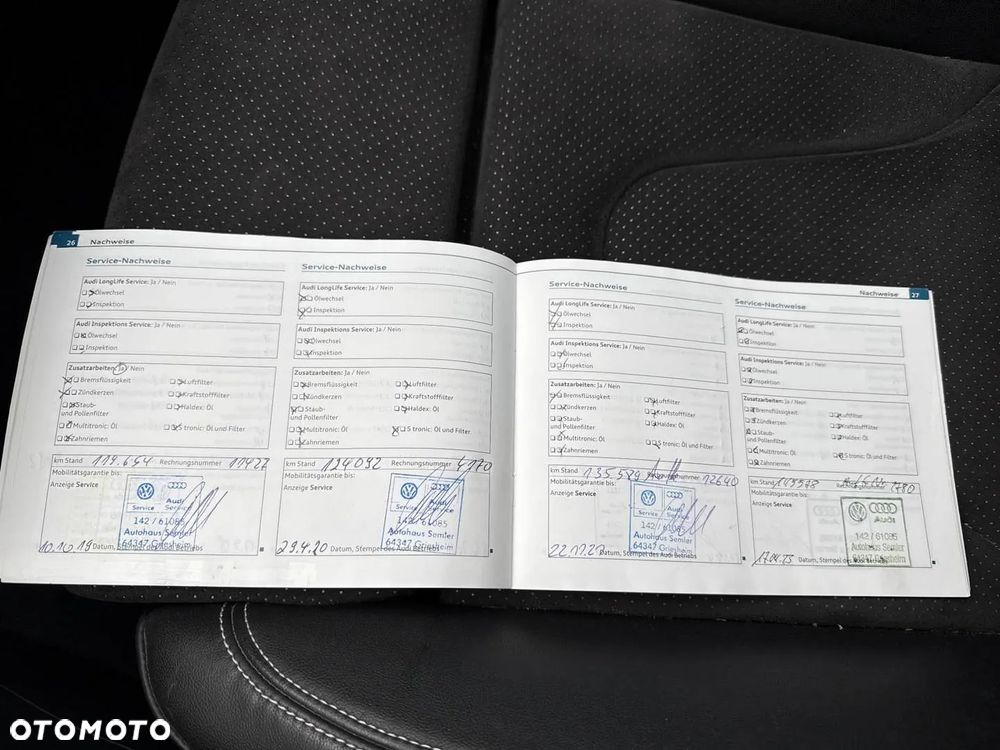 26 Nachweise
Service-Nachweise
Audi LongLife Service: Ja / Nein
Ölwechsel
Inspektion
Audi Inspektions Service: Ja / Nein
Ölwechsel
Inspektion
Zusatzarbeiten: Ja / Nein
Bremsflüssigkeit
Luftfilter
Zündkerzen
Kraftstofffilter
Staub-
und Pollenfilter
Haldex: Öl
Multitronic: Öl
S tronic: Öl und Filter
Zahnriemen
km Stand 119.654 Rechnungsnummer 11427
Mobilitätsgarantie bis:
Anzeige Service
Service
Audi
Service
142 / 61085
Autohaus Semler
64347 Griesheim
10.10.19 Datum, Stempel des Audi Betriebs
Service-Nachweise
Audi LongLife Service: Ja / Nein
Ölwechsel
Inspektion
Audi Inspektions Service: Ja / Nein
Ölwechsel
Inspektion
Zusatzarbeiten: Ja / Nein
Bremsflüssigkeit
Luftfilter
Zündkerzen
Kraftstofffilter
Staub-
und Pollenfilter
Haldex: Öl
Multitronic: Öl
S tronic: Öl und Filter
Zahnriemen
km Stand 124092 Rechnungsnummer 4170
Mobilitätsgarantie bis:
Anzeige Service
Service
Audi
Service
142 / 61085
Autohaus Semler
64347 Griesheim
29.4.20 Datum, Stempel des Audi Betriebs
Nachweise 27
Service-Nachweise
Audi LongLife Service: Ja / Nein
Ölwechsel
Inspektion
Audi Inspektions Service: Ja / Nein
Ölwechsel
Inspektion
Zusatzarbeiten: Ja / Nein
Bremsflüssigkeit
Luftfilter
Zündkerzen
Kraftstofffilter
Staub-
und Pollenfilter
Haldex: Öl
Multitronic: Öl
S tronic: Öl und Filter
Zahnriemen
km Stand 135.589 Rechnungsnummer 12640
Mobilitätsgarantie bis:
Anzeige Service
Service
Audi
Service
142 / 61085
Autohaus Semler
64347 Griesheim
Datum, Stempel des Audi Betriebs
Service-Nachweise
Audi LongLife Service: Ja / Nein
Ölwechsel
Inspektion
Audi Inspektions Service: Ja / Nein
Ölwechsel
Inspektion
Zusatzarbeiten: Ja / Nein
Bremsflüssigkeit
Luftfilter
Zündkerzen
Kraftstofffilter
Staub-
und Pollenfilter
Haldex: Öl
Multitronic: Öl
S tronic: Öl und Filter
Zahnriemen
km Stand
Mobilitätsgarantie bis:
Anzeige Service
Audi
142 / 61085
Autohaus Semler
64347 Griesheim
Datum, Stempel des Audi Betriebs
OTOMOTO